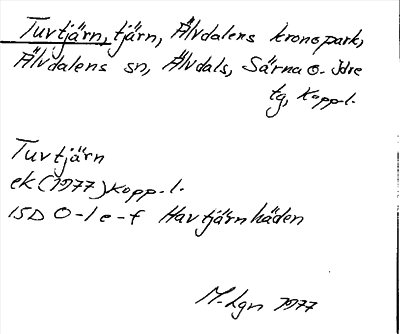 Tuvtjärn, tjärn, Älvdalens kronopark,
Älvdalens sn, Älvdals, Särna o. Idre
tg, Kopp.l.
Tuvtjärn
ek (1977) Kopp.l.
15D 0-1 e-f Havtjärnhäden
M. Lgn 1977